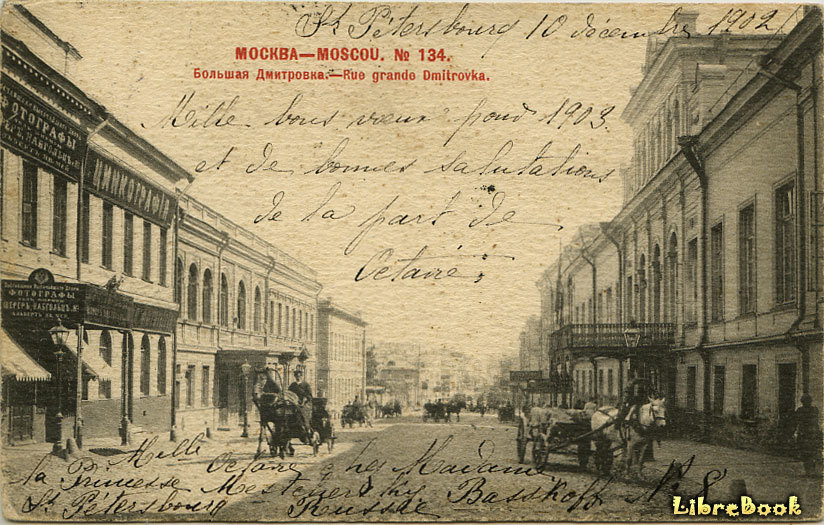 St Pétersbourg 10 décembre 1902
МОСКВА—MOSCOU. № 134.
Большая Дмитровка.—Rue grande Dmitrovka.
Mille bons vœux pour 1903
et de bonnes salutations
de la part de
Octavie
ФОТОГРАФЫ
ЦИНКОГРАФІЯ
ФОТОГРАФЫ
ШЕРЕРЪ НАБГОЛЬЦЪ
Mlle Octavie chez Madame
la Princesse Mestchersky Basskoff N 8
St Pétersbourg Russie
LibreBook